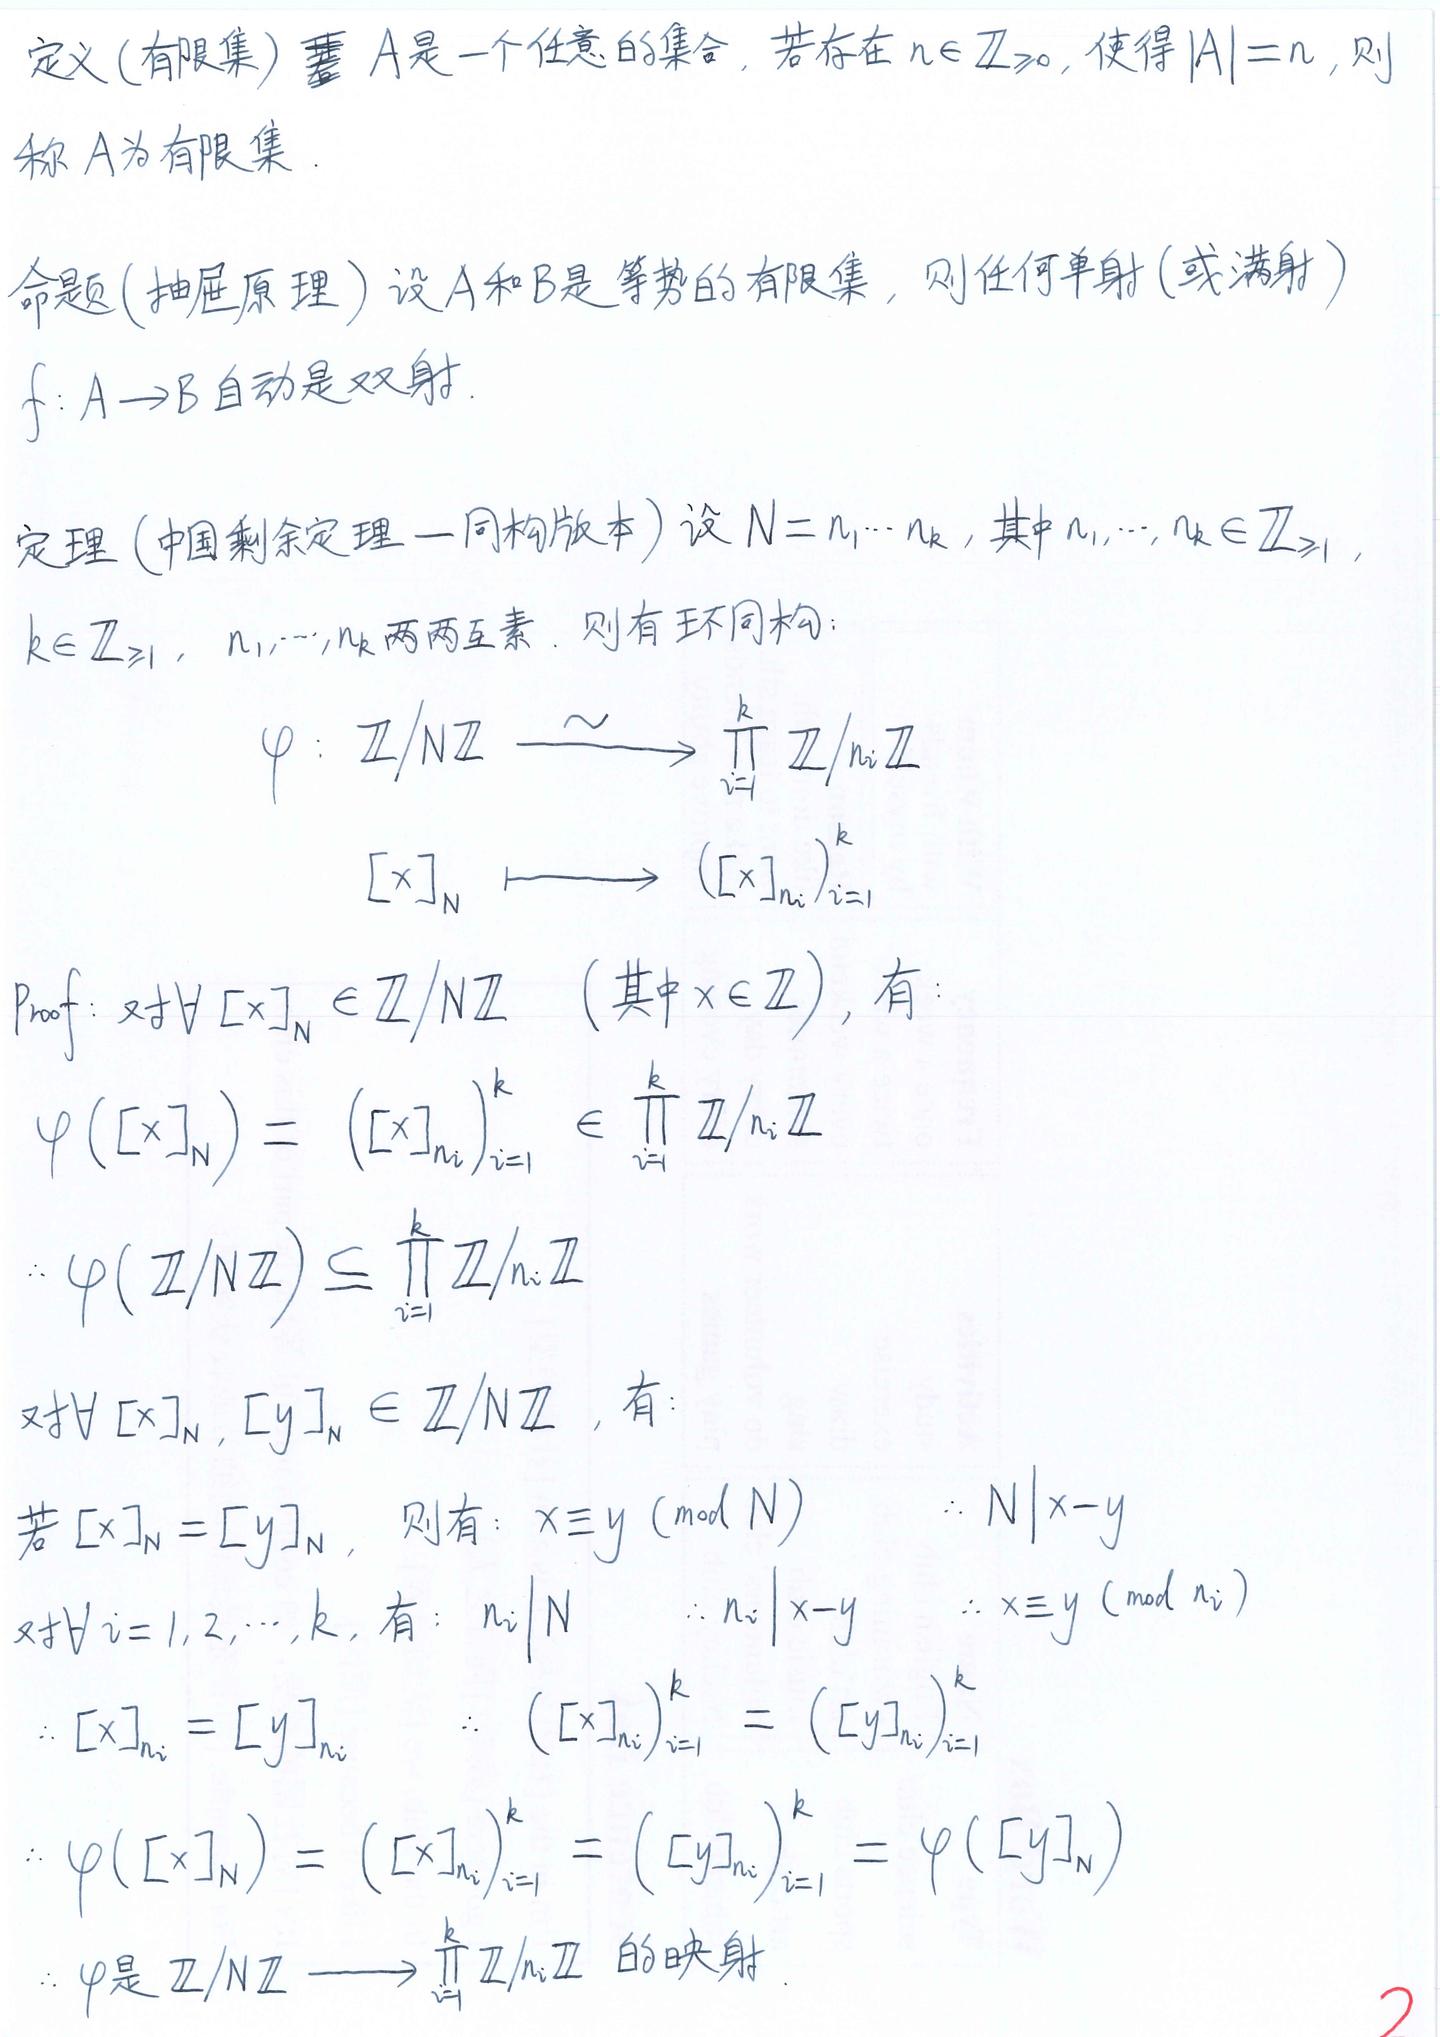 定义(有限集) A是一个任意的集合, 若存在 n∈ℤ≥0, 使得|A|=n, 则
称 A为有限集.
命题(抽屉原理) 设A和B是等势的有限集, 则任何单射(或满射)
f: A→B 自动是双射.
定理(中国剩余定理—同构版本) 设 N=n₁⋯nₖ, 其中 n₁,⋯,nₖ∈ℤ≥1,
k∈ℤ≥1, n₁,⋯,nₖ两两互素. 则有环同构:
φ: ℤ/Nℤ ⥲ ∏_{i=1}^{k} ℤ/nᵢℤ
[x]_N ⟼ ([x]_{nᵢ})_{i=1}^{k}
Proof: 对∀[x]_N∈ℤ/Nℤ (其中x∈ℤ), 有:
φ([x]_N) = ([x]_{nᵢ})_{i=1}^{k} ∈ ∏_{i=1}^{k} ℤ/nᵢℤ
∴ φ(ℤ/Nℤ) ⊆ ∏_{i=1}^{k} ℤ/nᵢℤ
对∀[x]_N, [y]_N ∈ ℤ/Nℤ, 有:
若[x]_N=[y]_N, 则有: x≡y (mod N) ∴ N|x-y
对∀i=1,2,⋯,k, 有: nᵢ|N ∴ nᵢ|x-y ∴ x≡y (mod nᵢ)
∴ [x]_{nᵢ} = [y]_{nᵢ} ∴ ([x]_{nᵢ})_{i=1}^{k} = ([y]_{nᵢ})_{i=1}^{k}
∴ φ([x]_N) = ([x]_{nᵢ})_{i=1}^{k} = ([y]_{nᵢ})_{i=1}^{k} = φ([y]_N)
∴ φ是 ℤ/Nℤ ⟶ ∏_{i=1}^{k} ℤ/nᵢℤ 的映射.
2